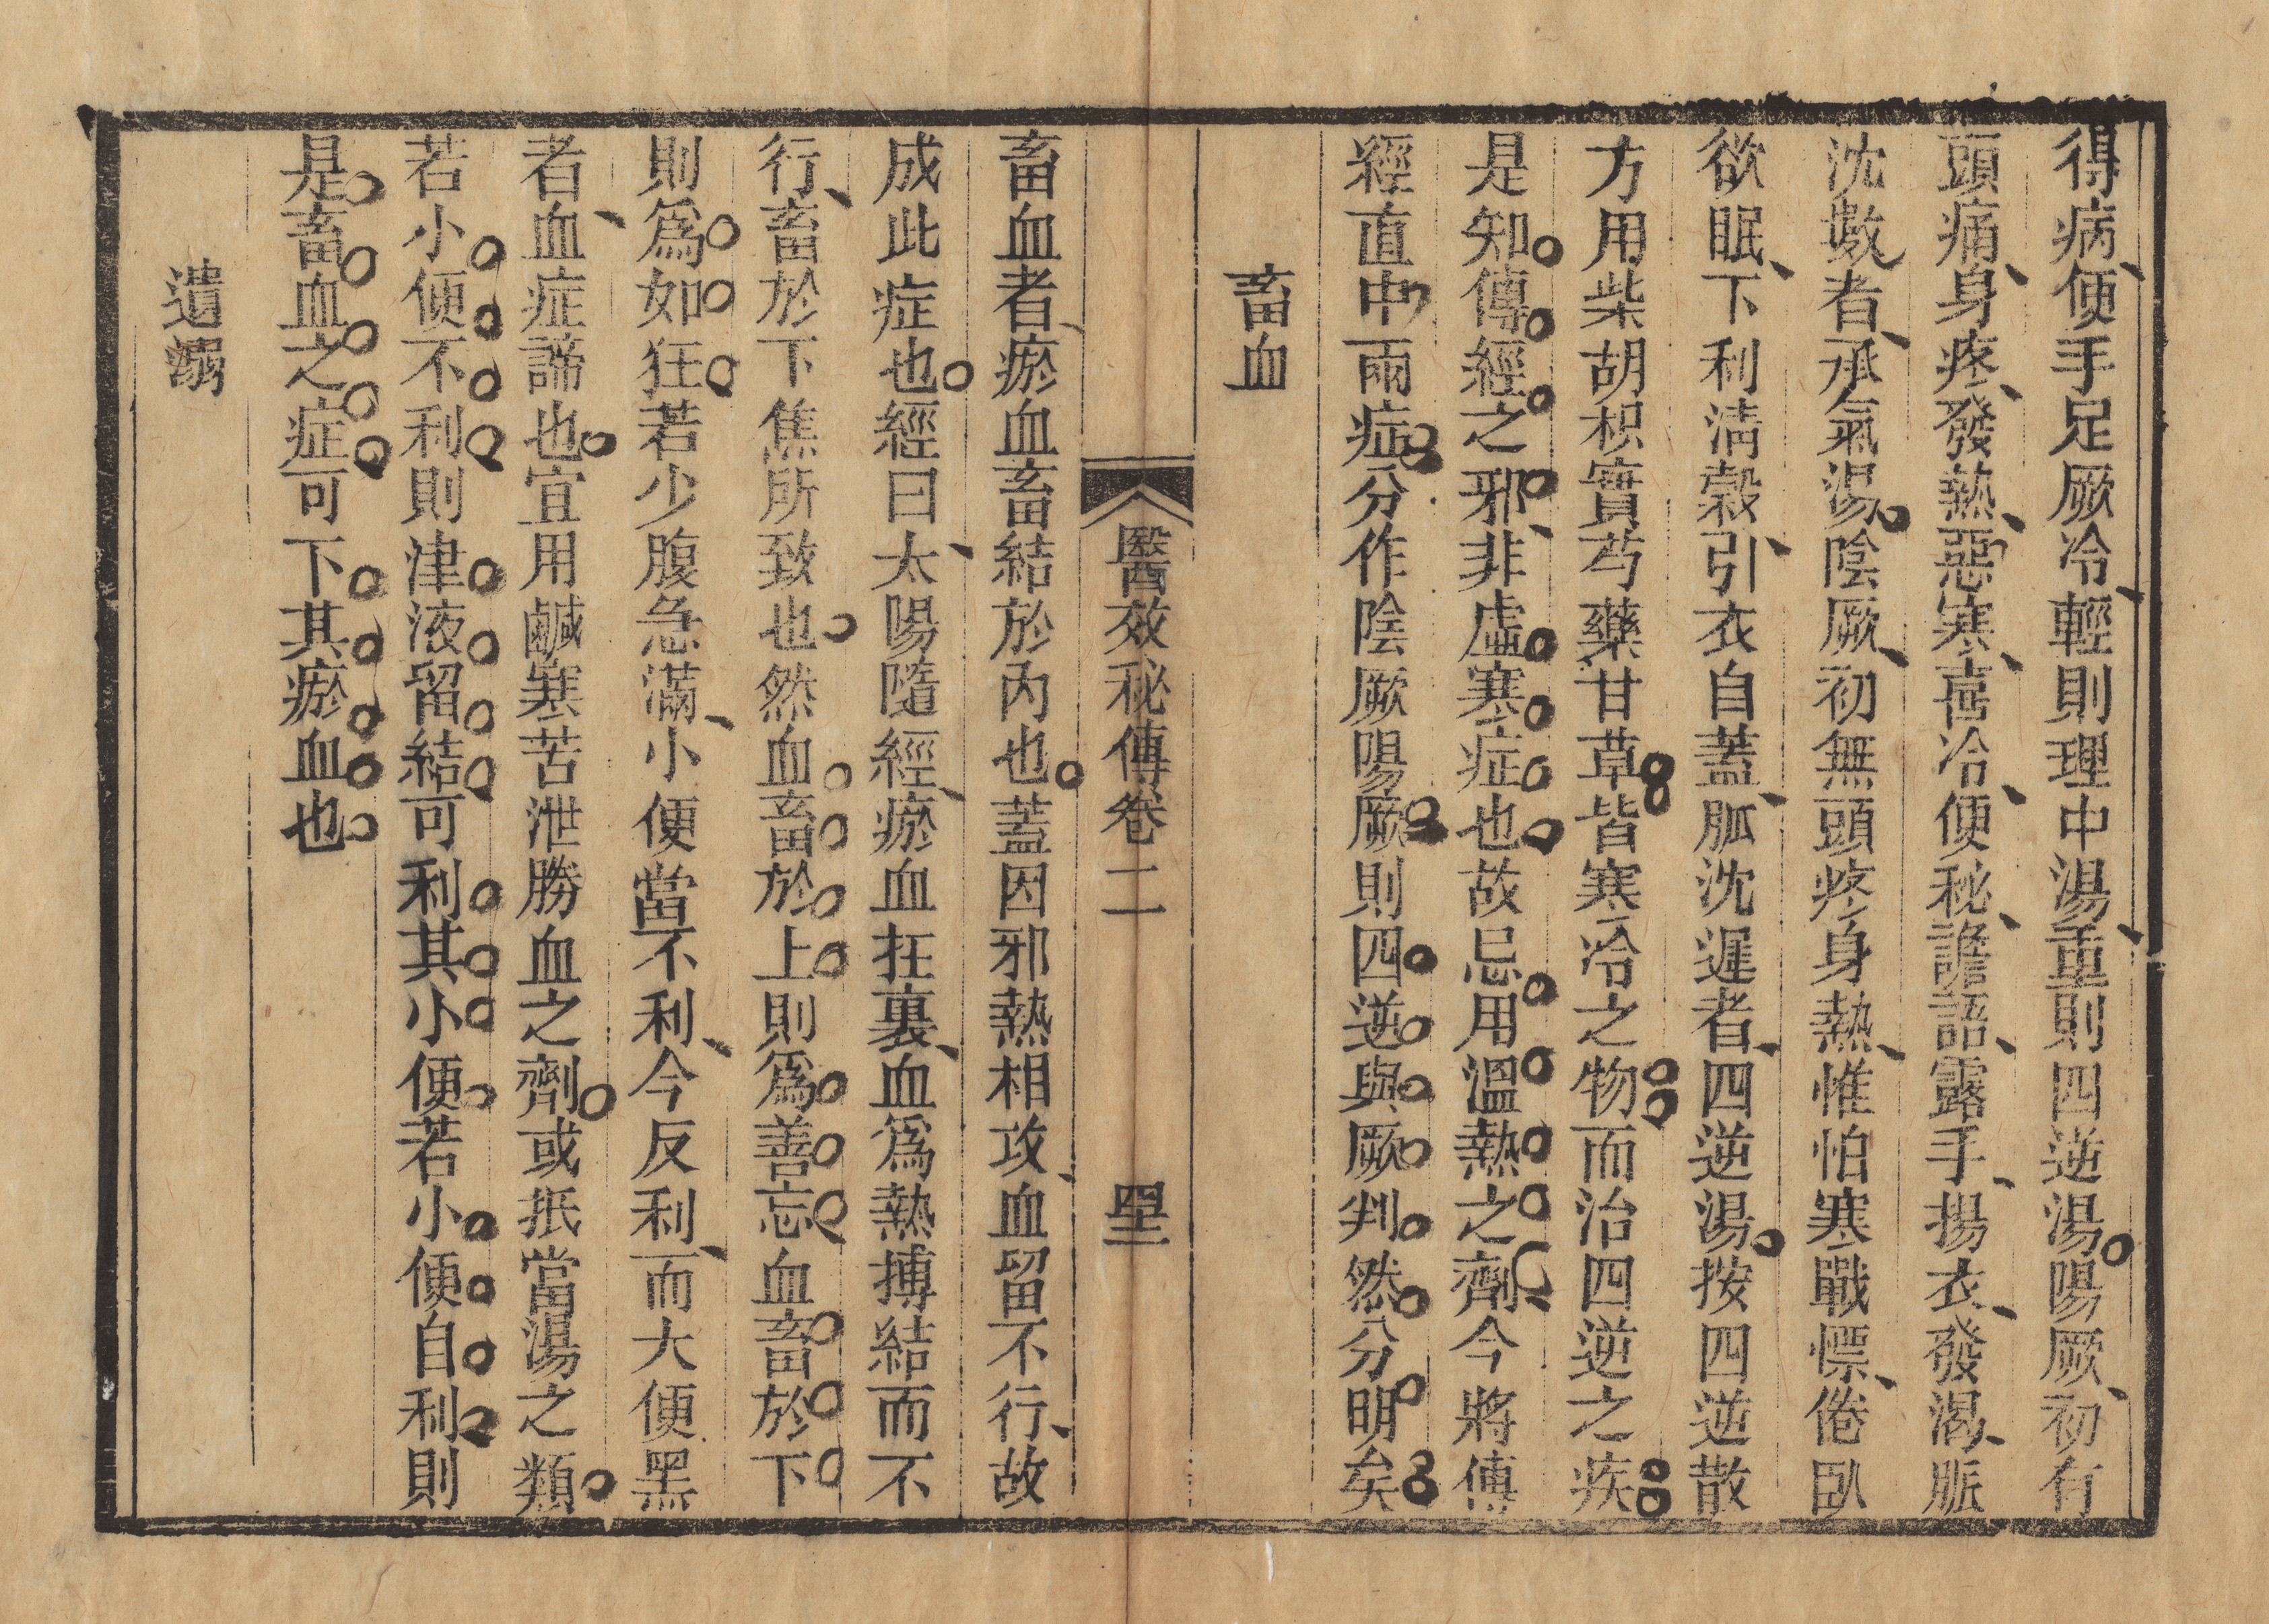 得病便手足厥冷輕則理中湯重則四逆湯陽厥初有
頭痛身疼發熱惡寒喜冷便秘譫語露手揚衣發渴脈
沈數者承氣湯陰厥初無頭疼身熱惟怕寒戰慄倦臥
欲眠下利淸穀引衣自蓋脈沈遲者四逆湯按四逆散
方用柴胡枳實芍藥甘草皆寒冷之物而治四逆之疾
是知傳經之邪非虛寒症也故忌用溫熱之劑今將傳
經直中兩症分作陰厥陽厥則四逆與厥判然分明矣
畜血
醫效秘傳卷二 四三
畜血者瘀血畜結於內也蓋因邪熱相攻血留不行故
成此症也經曰太陽隨經瘀血在裏血爲熱搏結而不
行畜於下焦所致也然血畜於上則爲善忘血畜於下
則爲如狂若少腹急滿小便當不利今反利而大便黑
者血症諦也宜用鹹寒苦泄勝血之劑或抵當湯之類
若小便不利則津液留結可利其小便若小便自利則
是畜血之症可下其瘀血也
遺溺